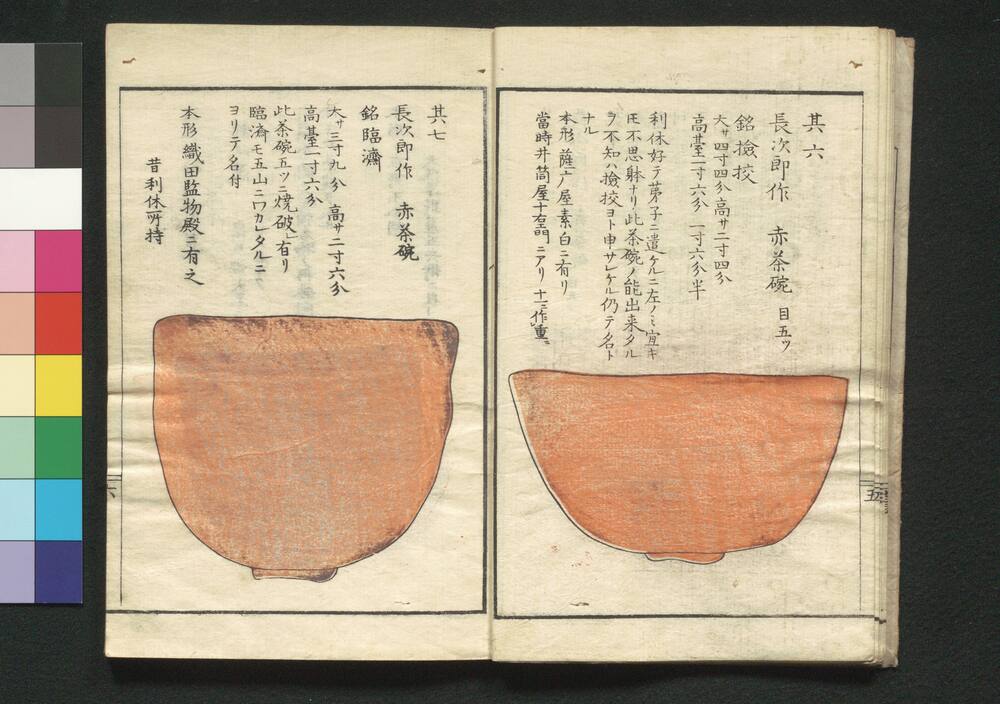 其六
長次郎作　赤茶碗　目五ツ
銘撿挍
大サ四寸四分高サ二寸四分
高臺一寸六分　一寸六分半
利休好テ苐子ニ遣ケルニ左ノミ宜キ
𪜈不思躰ナリ此茶碗ノ能出来タル
ヲ不知ハ撿挍ヨト申サレケル仍テ名ト
ナル
本形薩广屋素白ニ有リ
當時井筒屋十右門ニアリ
五
其七
長次郎作　赤茶碗
銘臨濟
大サ三寸九分　高サ二寸六分
高臺一寸六分
此茶碗五ツニ焼破有リ
臨濟モ五山ニワカレタルニ
ヨリテ名付
本形織田監物殿ニ有之
昔利休所持
六